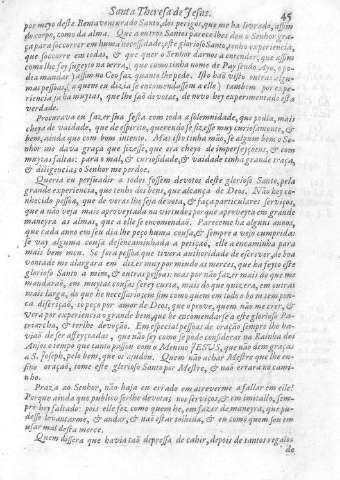 Santa Theresa de Jesus. 45
por meyo deste Benaventurado Santo, dos perigos, que me ha livrado, assim
do corpo, como da alma. Que a outros Santos parece lhes deu o Senhor gra-
ça para soccorrer em huma necessidade; este glorioso Santo, tenho experiencia,
que soccorre em todas, & que quer o Senhor darnos a entender, que assim
como lhe foy sugeyto na terra, que como tinha nome de Pay sendo Ayo, o po-
dia mandar) assim no Ceo faz quanto lhe pede. Isto haõ visto outras algu-
mas pessoas, (a quem eu dizia se encomendassem a elle) tambem por expe-
riencia; & ha muytas, que lhe saõ devotas, de novo hey experimentado esta
verdade.
Procurava eu fazer sua festa com toda a solemnidade, que podia, mais
cheya de vaidade, que de espirito, querendo se fizesse muy curiosamente, &
bem, ainda que com bom intento. Mas isto tinha máo, se algum bem o Se-
nhor me dava graça que fizesse, que era cheyo de imperfeyçoens, & com
muytas faltas: para o mal, & curiosidade, & vaidade tinha grande traça,
& diligencia; o Senhor me perdoe.
Queria eu persuadir a todos fossem devotos deste glorioso Santo, pela
grande experiencia, que tenho dos bens, que alcança de Deos. Não hey co-
nhecido pessoa, que de veras lhe seja devota, & faça particulares serviços,
que a não veja mais aproveytada na virtude; porque aproveyta em grande
maneyra as almas, que a elle se encomendaõ. Pareceme ha alguns annos,
que cada anno em seu dia lhe peço huma cousa, & sempre a vejo cumprida;
se vay alguma cousa desencaminhada a petiçaõ, elle a encaminha para
mais bem meu. Se fora pessoa, que tivera authoridade de escrever, de boa
vontade me alargara em dizer muy por miudo as merces, que ha feyto este
glorioso Santo a mim, & outras pessoas: mas por não fazer mais do que me
mandaraõ, em muytas cousas serey curta, mais do que quizera, em outras
mais larga, do que he necessario; em fim como quem em tudo o bom tem pou-
ca discriçaõ, só peço por amor de Deos, que o prove, quem não me crer, &
vera por experiencia o grande bem, que he encomendarse a este glorioso Pa-
triarcha, & terlhe devoçaõ. Em especial pessoas de oração sempre lhe ha-
viaõ de ser affeyçoadas, que não sey como se pode considerar na Rainha dos
Anjos o tempo que tanto passou com o Menino JESUS, que não dem graças
a S. Joseph, pelo bem, que os ajudou. Quem não achar Mestre que lhe en-
sine oraçaõ, tome este glorioso Santo por Mestre, & naõ errará no cami-
nho.
Praza ao Senhor, não haja eu errado em atreverme a fallar em elle!
Porque ainda que publico serlhe devota; nos serviços, & em imitallo, sem-
pre hey faltado: pois elle fez como quem he, em fazer de maneyra, que pu-
desse levantarme, & andar, & não estar tolhida, & eu como quem sou em
usar mal desta merce.
Quem dissera que havia taõ depressa de cahir, depois de tantos regalos
de